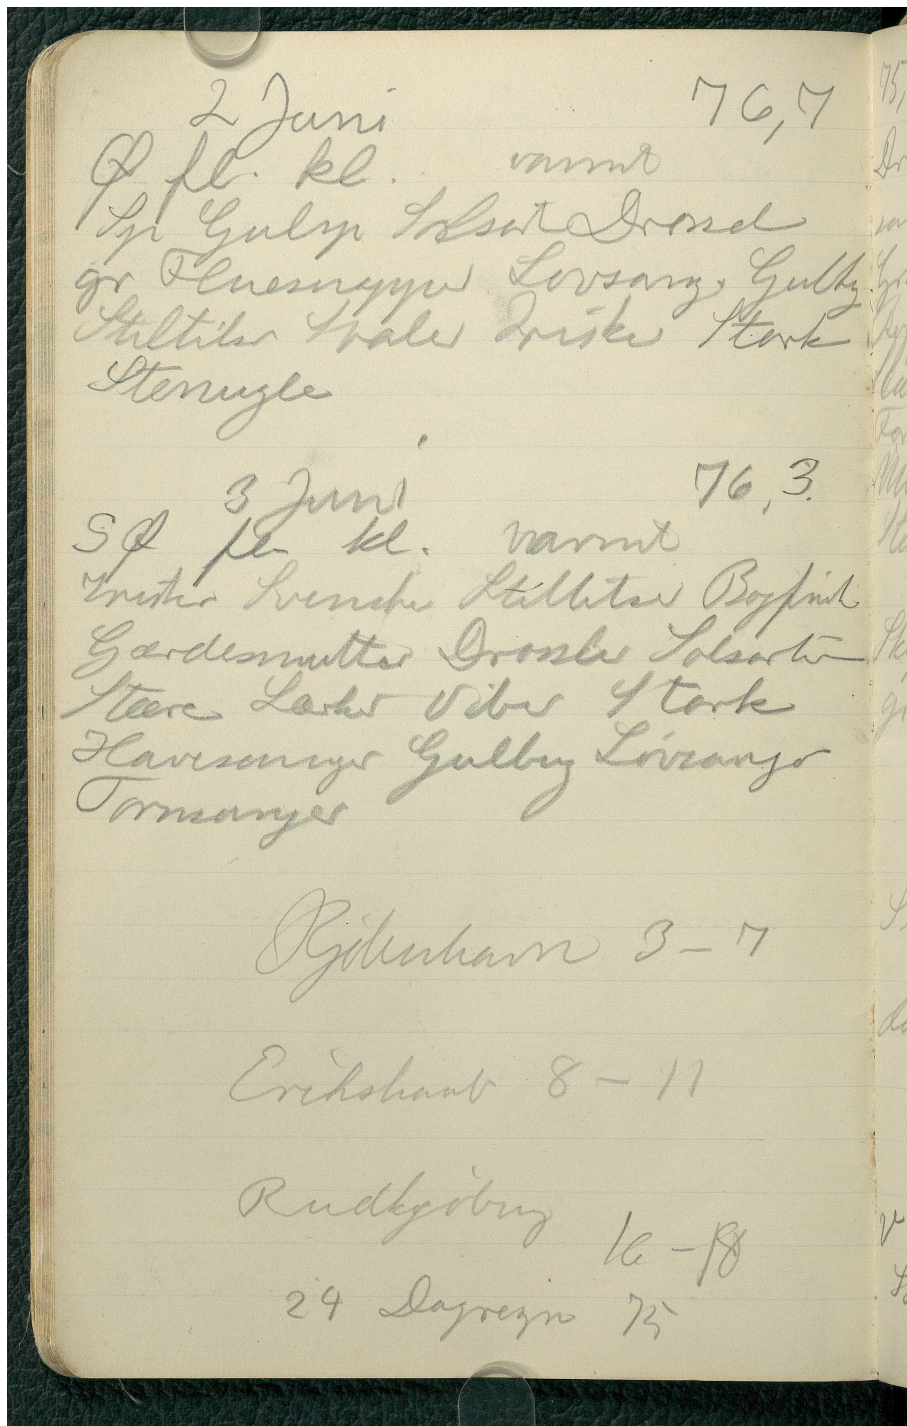 2 Juni 76,7
Ø fl. kl. varmt
Sp Gulsp Solsort Drossel
gr Fluesnapper Løvsang. Gulbg.
Stillitser Svaler Irisker Stork
Stenugle
3 Juni 76,3.
SØ fl. kl. varmt
Irisker Svenske Stillitser Bogfink
Gærdesmutter Drossler Solsorter
Stære Lærker Viber Stork
Havesanger Gulbug Løvsanger
Tornsanger
Kjöbenhavn 3 – 7
Erikshaab 8 – 11
Rudkjöbing
16 – 18
24 Dagregn 75